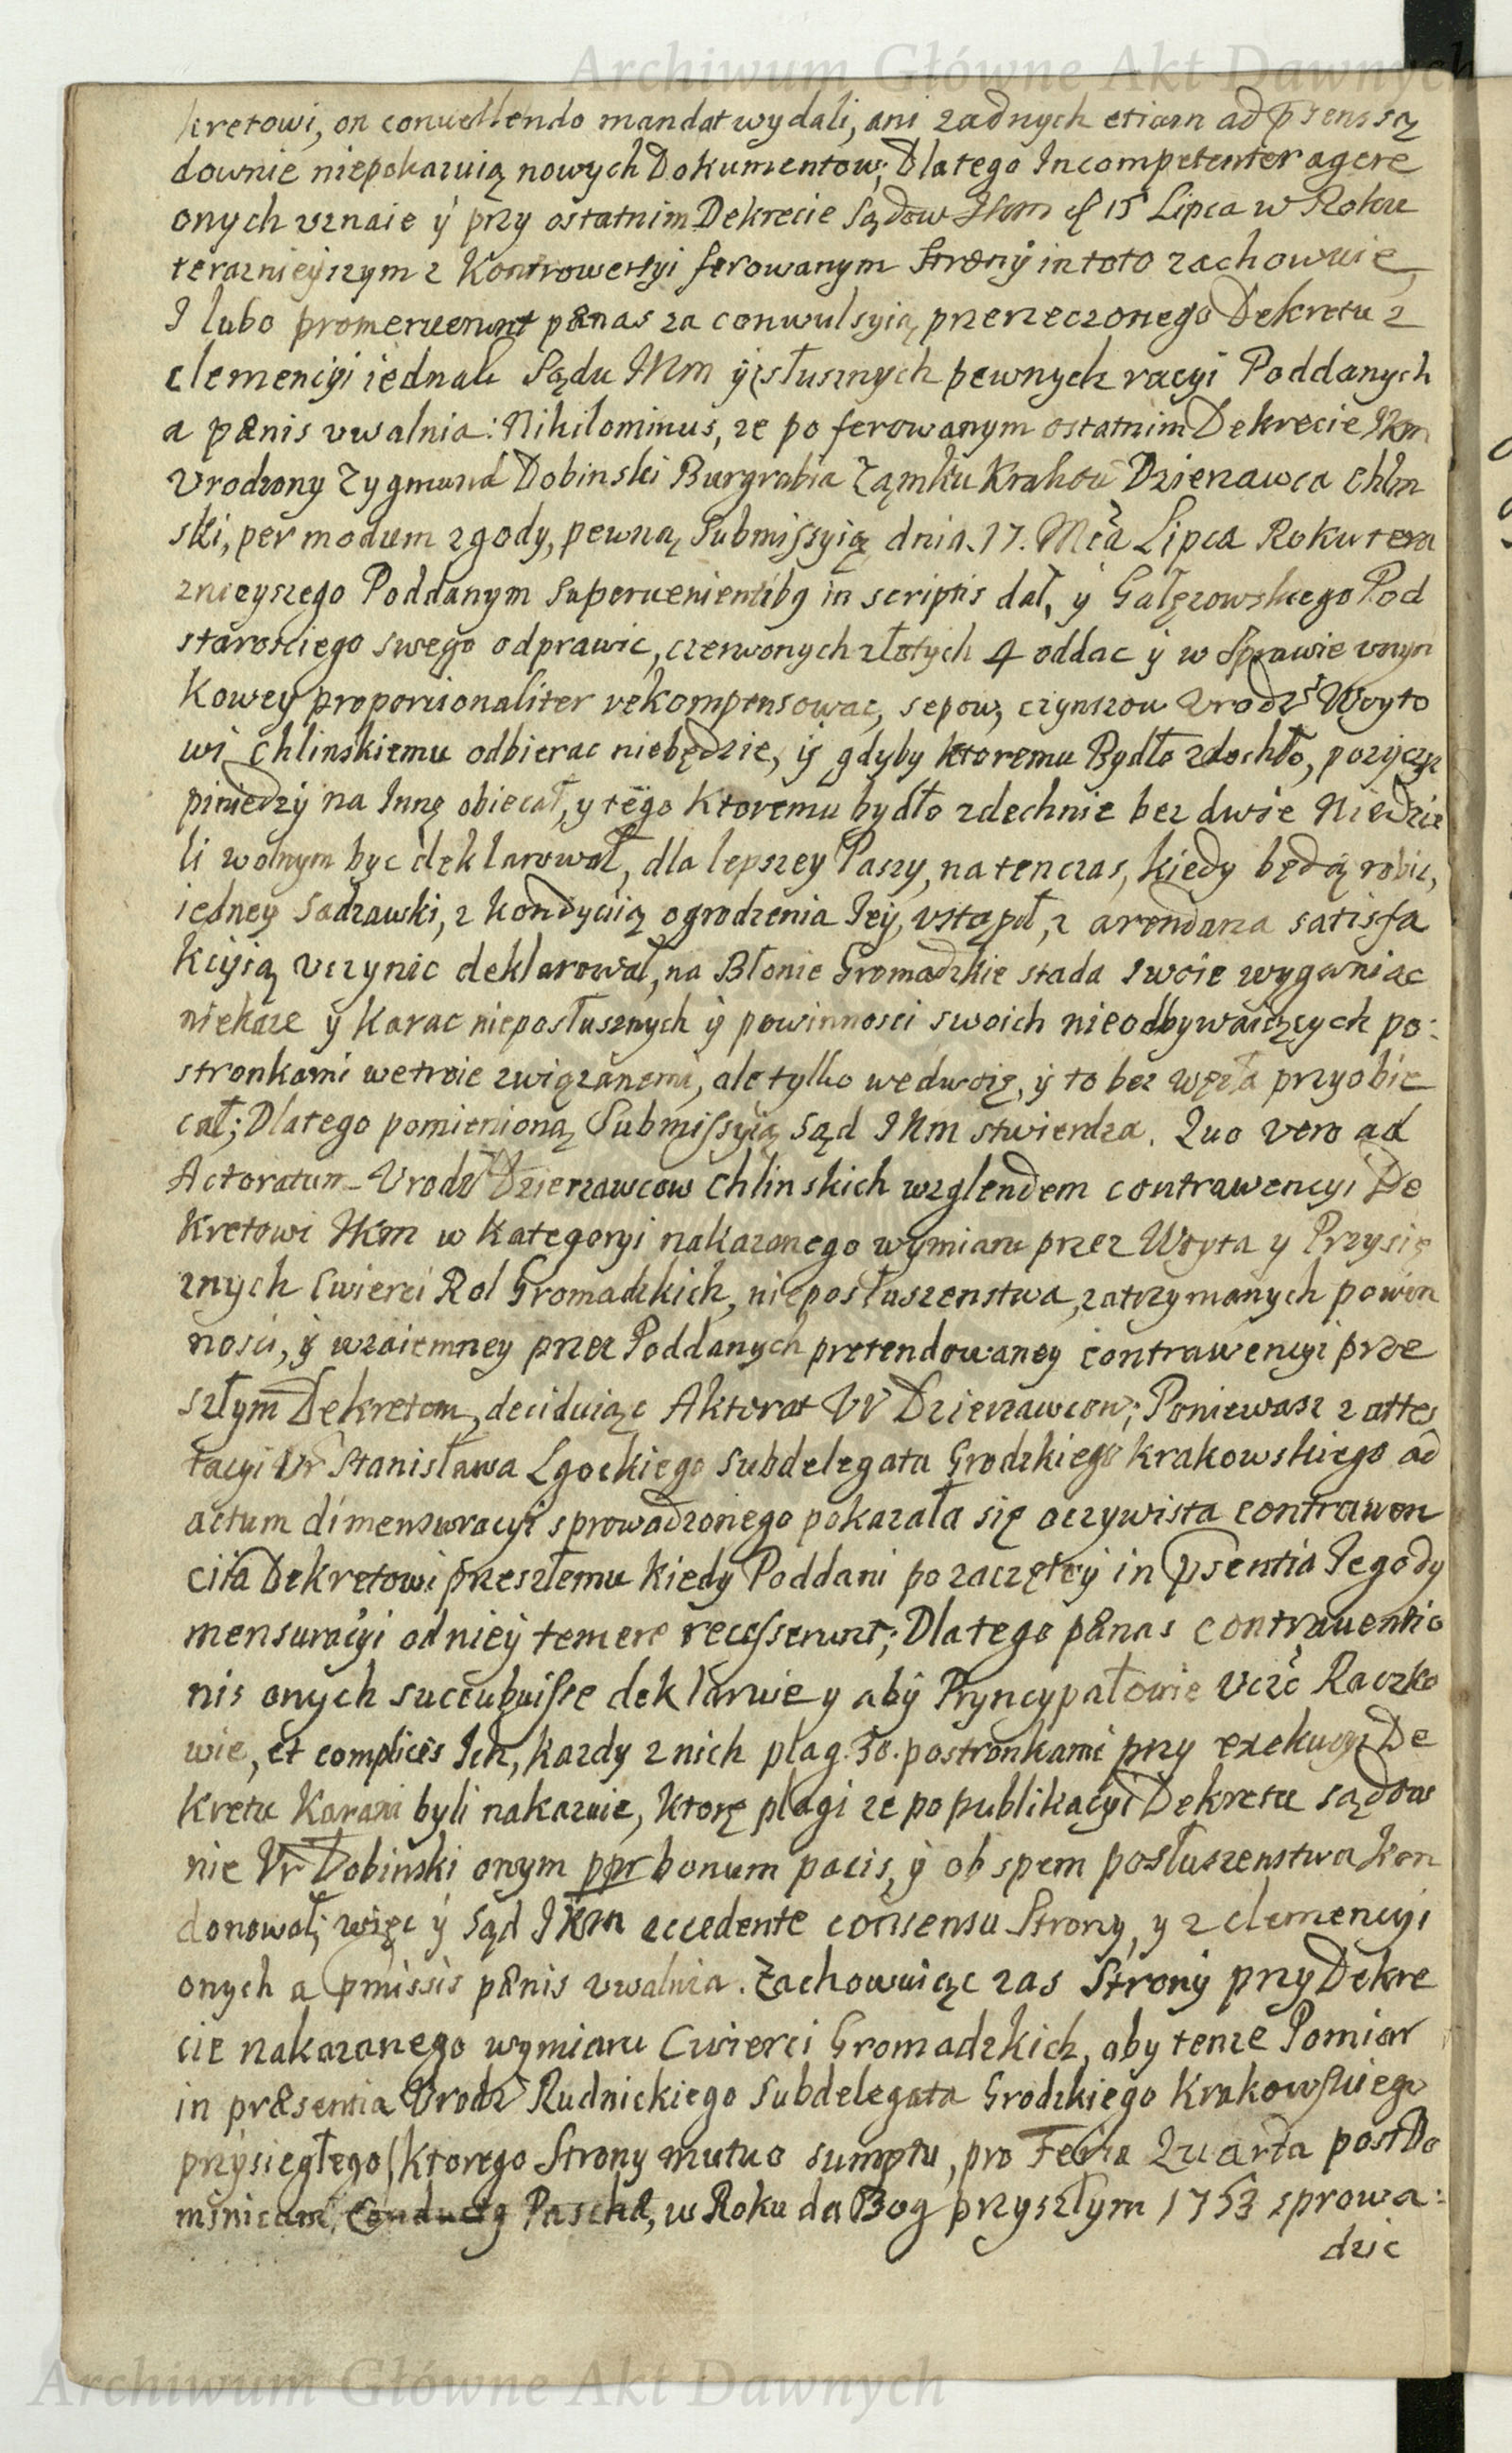 Archiwum Główne Akt Dawnych
kretowi, on convellendo mandat wydali, ani zadnych etiam ad psens są
downie niepokazuią nowych Dokumentow; Dlatego Incompetenter agere
onych uznaie ÿ przy ostatnim Dekrecie Sądow JKm 15 Lipca w Roku
teraznieÿszym z Kontrowersyi ferowanym Stronÿ in toto zachowuie,
I lubo promeruerunt pænas za conwulsyią przerzeczonego Dekretu z
clemencÿi iednak Sądu JKm ÿ słusznych pewnych racyi Poddanych
a pænis uwalnia: Nihilominus, ze po ferowanym ostatnim Dekrecie JKm
Urodzony Zygmund Dobinski Burgrabia Zamku Krakou Dzierzawca Chlin
ski, per modum zgody, pewną Submissyią dnia. 17. Mca Lipca Roku tera
znieyszego Poddanym Supervenientibq in scriptis dał, ÿ Gałęzowskiego Pod
starosciego swego odprawic, czerwonych złotych 4 oddac ÿ w Sprawie
kowey proporcionaliter rekompensowac, sepow, czynszow Urodz Woyto
wi Chlinskiemu odbierac niebędzie, ÿ gdyby ktoremu Bydło zdechło, pozyczyc
pieniedzÿ na Inną obiecał, y tego ktoremu bydło zdechnie bez dwie Niedzie
li wolnym byc deklarował, dla lepszey Paszy, natenczas, kiedy będą robic,
iedneÿ Sadzawki, z kondycyią ogrodzenia Jeÿ, ustąpił, z arendarza satisfa
kcÿią uczynic deklarował, na Błonie Gromadzkie stada swoie wyganiac
niekaze ÿ karac nieposłusznych ÿ powinnosci swoich nieodbywaiących po:
stronkami wetroie związanemi, ale tylko wedwoię, ÿ to bez węzła przyobie
cał; Dlatego pomienioną Submissyią Sąd JKm stwierdza. Quo vero ad
Actoratum Urodz Dzierzawcow Chlinskich wzglendem contrawencyi De
kretowi JKm w kategoryi nakazanego wymiaru przez Woyta y Przysię
znych Cwierci Rol Gromadzkich, nieposłuszenstwa, zatrzymanych powin
nosci, ÿ wzaiemney przez Poddanych pretendowaney contrawencyi prze
szłym Dekretom, deciduiąc Aktorat Ur Dzierzawcow; Poniewasz z attes
tacyi Ur Stanisława Lgockiego Subdelegata Grodzkiego Krakowskiego ad
actum dimensuracyi sprowadzonego pokazała się oczywista contrawen
ciia Dekretowi przeszłemu kiedy Poddani po zaczętey in psentia Jego dy
mensuracyi od nieÿ temere recesserunt; Dlatego pænas contraventio
nis onych succubuisse deklaruie y abÿ Pryncypałowie Ucźc Raczko
wie, et complices Ich, kazdy z nich plag. 50. postronkami przy exekucyi De
kretu karani byli nakazuie, ktorę plagi ze po publikacyi Dekretu sądow
nie Ur Dobinski onym ppr bonum pacis, ÿ ob spem posłuszenstwa kon
donował; więc ÿ Sąd JKm accedente consensu Strony, y z clemencyi
onych a pmissis pænis uwalnia. Zachowuiąc zas Stronÿ przy Dekre
cie nakazanego wymiaru Cwierci Gromadzkich, aby tenze Pomiar
in præsentia Urodz Rudnickiego Subdelegata Grodzkiego Krakowskiego
przysięgłego (ktorego Strony mutuo sumptu, pro Feria Quarta post Do
minicam Paschæ, w Roku da Bog przyszłym 1753 sprowa:
dzic
Archiwum Główne Akt Dawnych